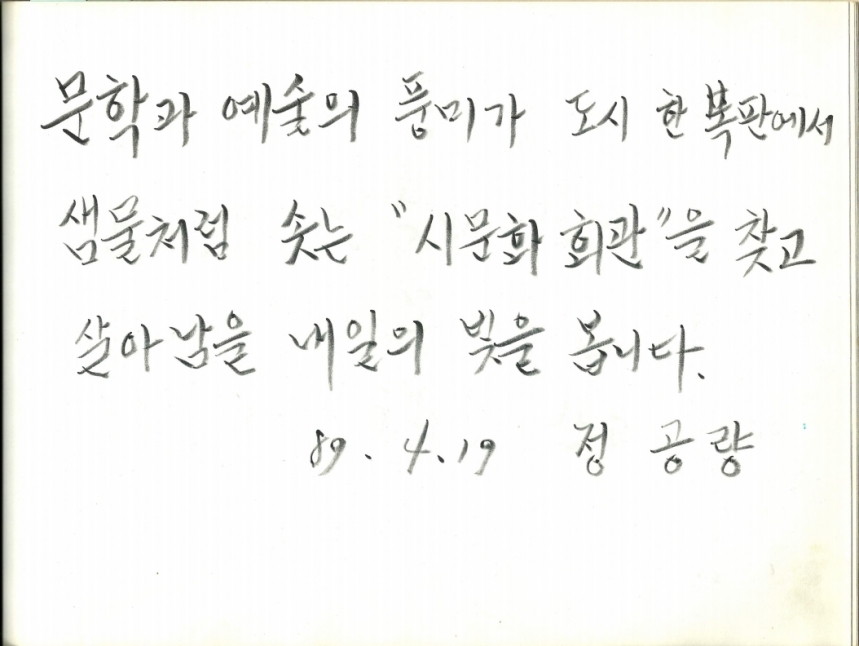 문학과 예술의 풍미가 도시 한 복판에서
샘물처럼 솟는 "시문화 회관"을 찾고
살아남을 내일의 빛을 봅니다.
89. 4. 19 정 공 량